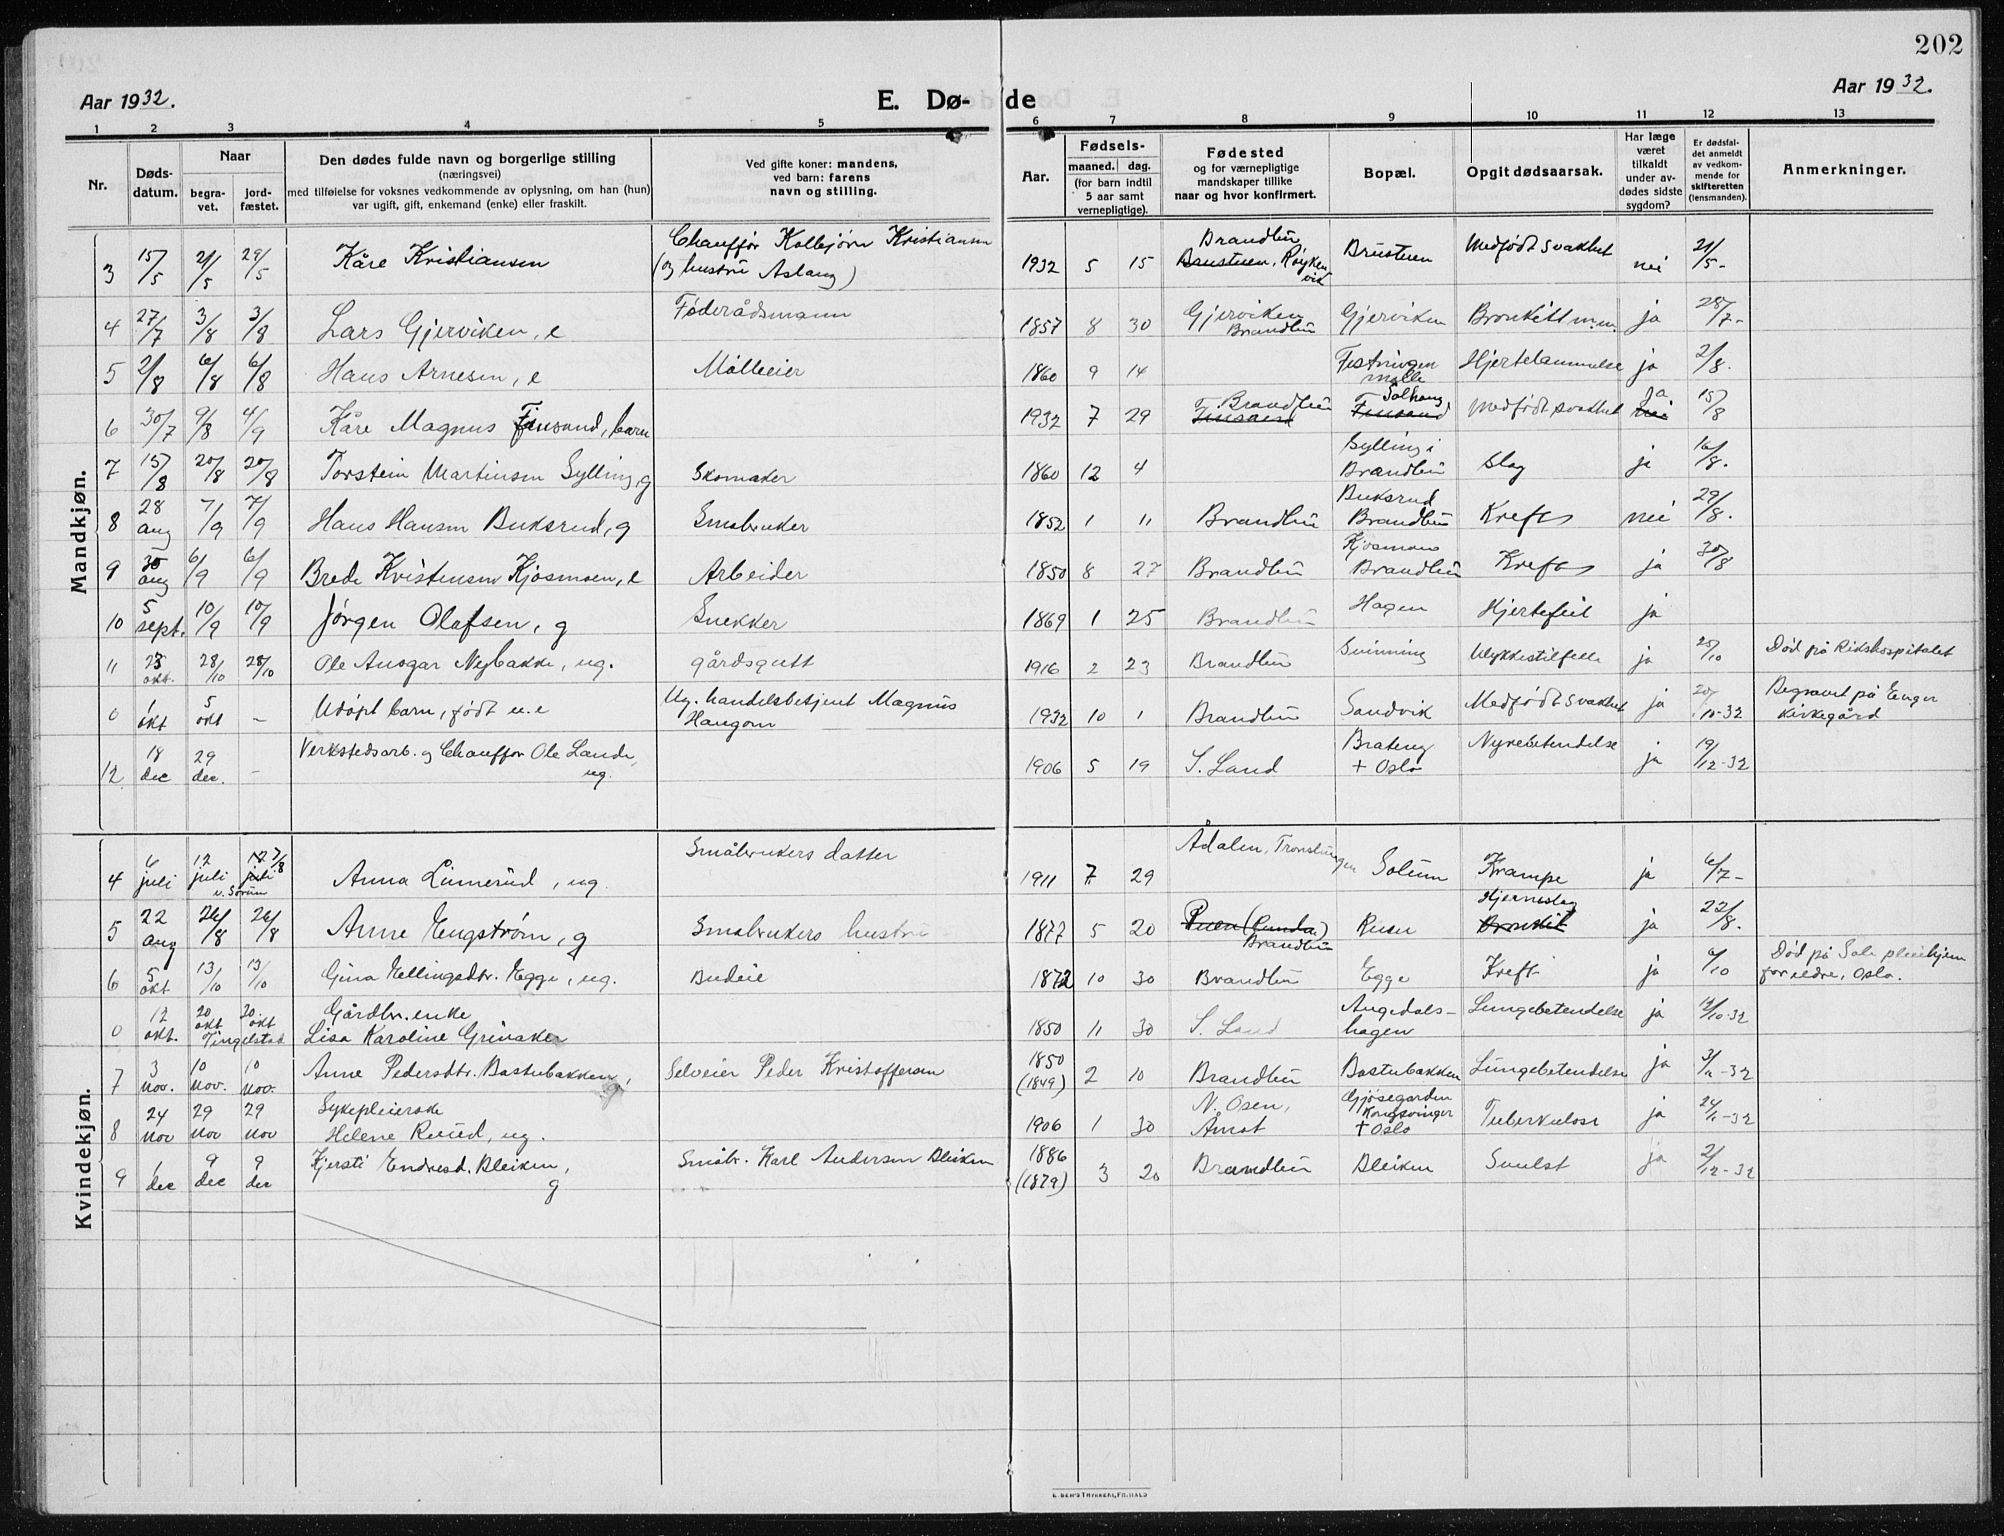 202
Aar 1932.
E. Dø-
de
Aar 1932.
1 2 3 4 5 6 7 8 9 10 11 12 13
Nr.
Døds-
datum.
Naar
begra-
vet.
jord-
fæstet.
Den dødes fulde navn og borgerlige stilling
(næringsvei)
med tilføielse for voksnes vedkommende av oplysning, om han (hun)
var ugift, gift, enkemand (enke) eller fraskilt.
Ved gifte koner: mandens,
ved barn: farens
navn og stilling.
Aar.
Fødsels-
maaned. dag.
(for barn indtil
5 aar samt
vernepligtige).
Fødested
og for værnepligtige
mandskaper tillike
naar og hvor konfirmert.
Bopæl.
Opgit dødsaarsak.
Har læge
været
tilkaldt
under av-
dødes sidste
sygdom?
Er dødsfal-
det anmeldt
av vedkom-
mende for
skifteretten
(lensmanden).
Anmerkninger.
Mandkjøn.
3 15/5 21/5 29/5 Kåre Kristiansen Chauffør Kolbjørn Kristiansen
(og hustru Aslaug) 1932 5 15 Brandbu
Brustuen, Røyken
vik Brustuen Medfødt svakhet nei 21/5-
4 27/7 3/8 3/8 Lars Gjerviken, e Føderådsmann 1857 8 30 Gjerviken
Brandbu Gjerviken Bronkitt m.m. ja 28/7-
5 2/8 6/8 6/8 Hans Arnesen, e Mølleeier 1860 9 14 Festningen
mølle Hjertelammelse ja 2/8.
6 30/7 9/8 4/9 Kåre Magnus Finsand, barn 1932 7 29 Brandbu
Finsand Solhaug
Finsand Medfødt svakhet Ja
nei 15/8
7 15/8 20/8 20/8 Torstein Martinsen Sylling, g Skomaker 1860 12 4 Sylling i
Brandbu Slag ja 16/8.
8 28
aug 7/9 7/9 Hans Hansen Buksrud, g Småbruker 1852 1 11 Brandbu Buksrud
Brandbu Kreft nei 29/8.
9 30
aug 6/9 6/9 Brede Kristensen Kjosmoen, e Arbeider 1850 8 27 Brandbu Kjosmoen
Brandbu Kreft ja 30/8
10 5
sept. 10/9 10/9 Jørgen Olafsen, g Snekker 1869 1 25 Brandbu Hagen Hjertefeil ja
11 23
okt. 28/10 28/10 Ole Ansgar Nybakke, ug. gårdsgutt 1916 2 23 Brandbu Svinning Ulykkestilfelle ja 25/10 Død på Rikshospitalet
0 1
okt 5
okt - Udøpt barn, født u.e Ug. handelsbetjent Magnus
Haugom 1932 10 1 Brandbu Sandvik Medfødt svakhet ja 20/10-32 Begravet på Enger
kirkegård
12 18
dec 29
dec. - Verkstedsarb. og Chauffør Ole Lande,
ug. 1906 5 19 S. Land Brateng
+ Oslo Nyrebetendelse ja 19/12-32
Kvindekjøn.
4 6
juli 12
juli
v. Sørum 12 7/8
juli Anna Linnerud, ug. Småbrukers datter 1911 7 29 Ådalen, Solum Krampe ja 6/7-
5 22
aug 26/8 26/8 Anne Engstrøm, g Småbrukers hustru 1877 5 20 Ruen (Lunder)
Brandbu Ruen Hjerneslag
Bronkit ja 22/8.
6 5
okt 13/10 13/10 Gina Ellingsdtr. Egge, ug. Budeie 1872 10 30 Brandbu Egge Kreft ja 6/10 Død på Sole pleiehjem
for eldre, Oslo.
0 12
okt. 20
okt 20
okt
Tingelstad Gårdbr. enke
Lisa Karoline Grinaker 1850 11 30 S. Land Augedals-
hagen Lungebetendelse ja 12/10-32
7 3
nov. 10
nov. 10
nov. Anne Pedersdtr. Bastubakken, g Selveier Peder Kristoffersen 1850
(1849) 2 10 Brandbu Bastubakken Lungebetendelse ja 3/11-32
8 24
nov 29
nov 29
nov Sykepleierske
Helene Ruud, ug. 1906 1 30 N. Osen,
Åmot Gjøsegarden
Kongsvinger
+ Oslo Tuberkulose ja 24/11-32
9 1
dec 9
dec 9
dec Kjersti Endresd. Bleiken,
g Småbr. Karl Andersen Bleiken 1886
(1879) 3 20 Brandbu Bleiken Svulst ja 2/12-32